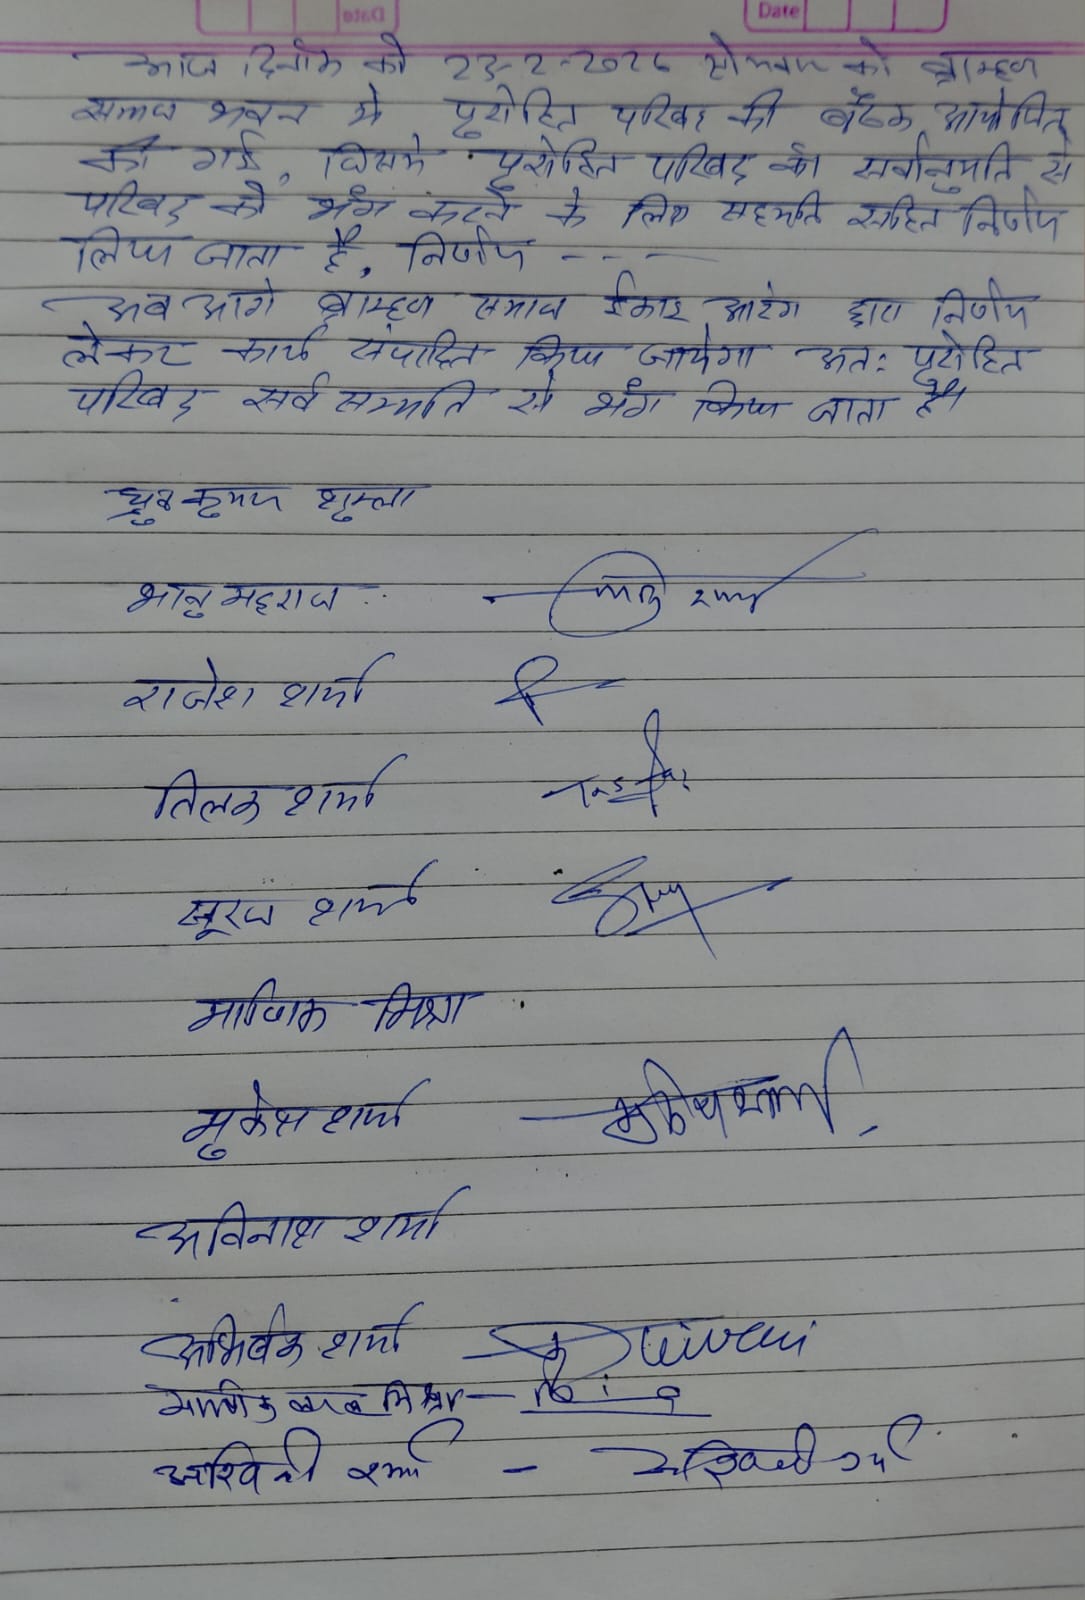 Date
Date
आज दिनाँक को 23-2-2026 सोमवार को ब्राम्हण
समाज भवन मे पुरोहित परिषद की बैठक आयोजित
की गई, जिसमे पुरोहित परिषद का सर्वानुमति से
परिषद को भंग करने के लिए सहमति सहित निर्णय
लिया जाता है, निर्णय ---
अब आगे ब्राम्हण समाज ईकाई आरंग द्वारा निर्णय
लेकर कार्य संपादित किया जायेगा अत: पुरोहित
परिषद सर्व सम्मति से भंग किया जाता है।
ध्रुव कुमार शुक्ला
भानु महराज
राजेश शर्मा
तिलक शर्मा
सूरज शर्मा
माणिक मिश्रा
मुकेश शर्मा
अविनाश शर्मा
अभिषेक शर्मा
मिश्रा
अश्विनी शर्मा - अश्विनी शर्मा